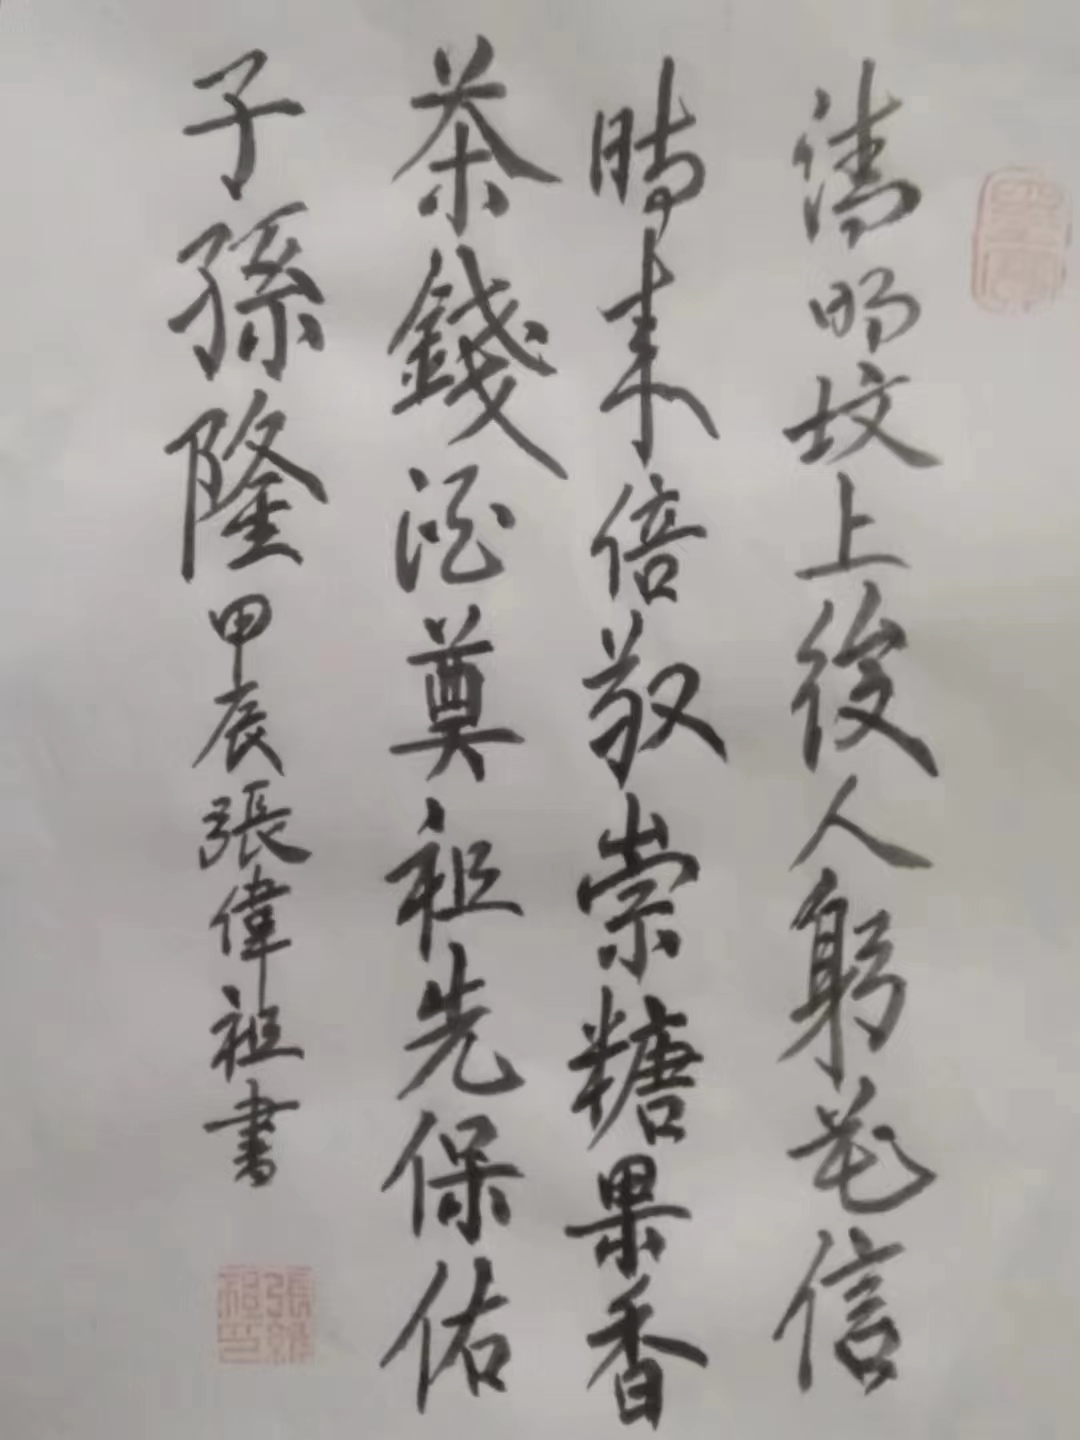 清明坟上後人躬花信
時来倍敬崇糖果香
茶錢酒奠祖先保佑
子孫隆甲辰張偉祖書
張偉祖印